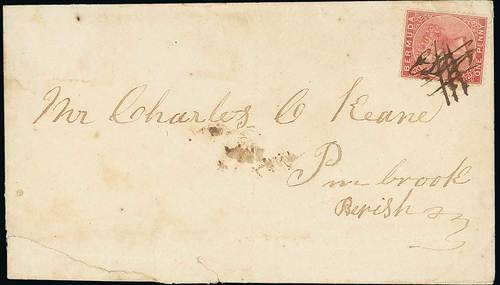 BERMUDA
ONE PENNY
Mr Charles O Keane
Pmbrook
Perish